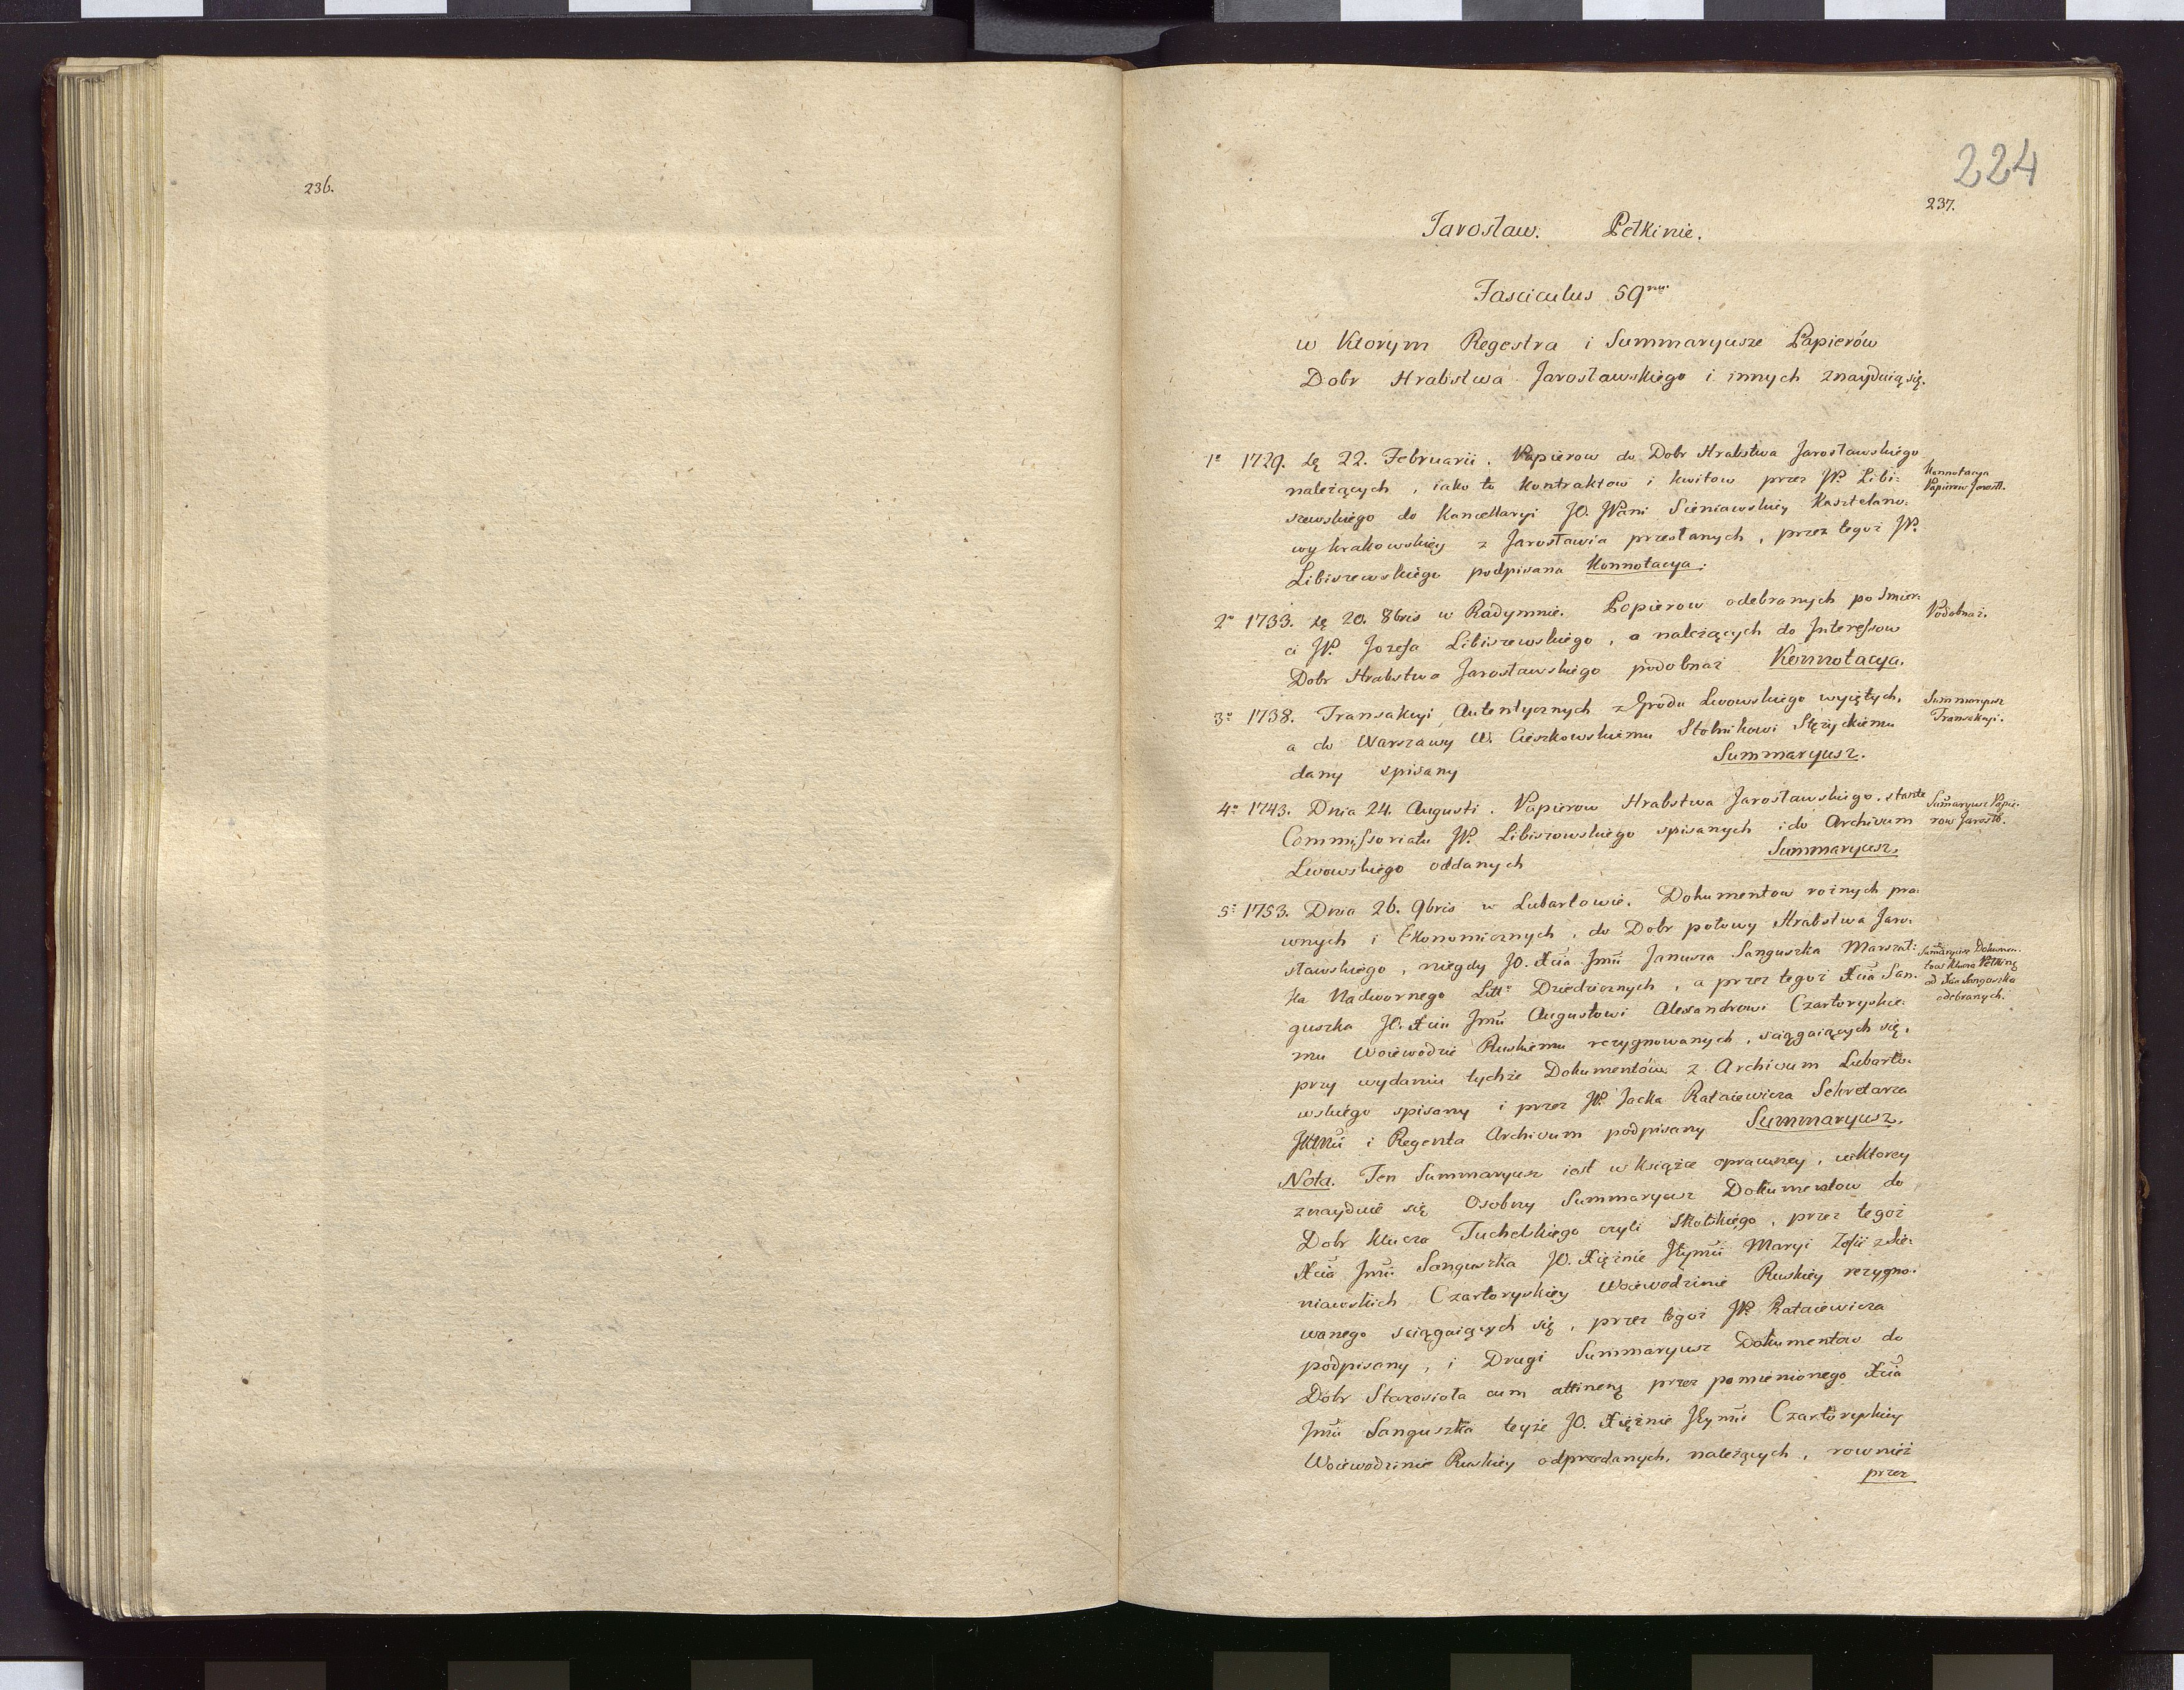 236.
224
237.
Jarosław. Pełkinie.
Fasciculus 59nus
w Ktorym Regestra i Summaryusze Papierów
Dobr Hrabstwa Jarosławskiego i innych znayduią się.
1o 1729. Dę 22. Februarii. Papierow do Dobr Hrabstwa Jarosławskiego
należących, iako to Kontraktow i kwitow przez JP. Libi-
szewskiego do Kancellaryi JO. JPani Sieniawskiey Kasztelano-
wy krakowskiey z Jarosławia przesłanych, przez tegoż JP.
Libiszewskiego podpisana Konnotacya.
Konnotacya
Papierow Jarosł.
2o 1733. Dę 20. 8bris w Radymnie. Popierow odebranych po Smier-
ci JP. Jozefa Libiszewskiego, a należących do Interessow
Dobr Hrabstwa Jarosławskiego podobnaż Konnotacya.
Podobnaż.
3o 1738. Transakcyi Autentycznych z Grodu Lwowskiego wyiętych,
a do Warszawy W. Cieszkowskiemu Stolnikowi Stężyckiemu
dany spisany Summaryusz.
Summaryusz
Transakcyi.
4o 1743. Dnia 24. Augusti. Papierow Hrabstwa Jarosławskiego, stante
Commissoriatu JP. Libiszowskiego spisanych i do Archivum
Lwowskiego oddanych Summaryusz.
Sumaryusz Papie-
row Jarosł.
5o 1753. Dnia 26. 9bris w Lubartowie. Dokumentow rożnych pra-
wnych i Ekonomicznych, do Dobr połowy Hrabstwa Jaro-
sławskiego, niegdy JO. Xcia Jmci Janusza Sanguszka Marszał-
ka Nadwornego Litto Dziedzicznych, a przez tegoż Xcia San-
guszka JO. Xciu Jmci Augustowi Alexandrowi Czartoryskie-
mu Woiewodzie Ruskiemu rezygnowanych, sciągaiących się,
przy wydaniu tychże Dokumentów z Archivum Lubarto-
wskiego spisany i przez JP. Jacka Rataiewicza Sekretarza
JKMci i Regenta Archivum podpisany Summaryusz.
Sumaryusz Dokumen-
tow Klucza Pełkin:
od Xcia Sanguszka
odebranych.
Nota. Ten Summaryusz iest w książce oprawney, w ktorey
znayduie się Osobny Summaryusz Dokumentow do
Dobr Klucza Tuchelskiego czyli Skolskiego, przez tegoż
Xcia Jmci Sanguszka JO. Xiężnie Jeymci Maryi Zofii z Sie-
niawskich Czartoryskiey Woiewodzinie Ruskiey rezygno-
wanego sciągaiących się, przez tegoż JP. Rataiewicza
podpisany, i Drugi Summaryusz Dokumentow do
Dobr Starosioła cum attinen: przez pomienionego Xcia
Jmci Sanguszka teyże JO. Xiężnie Jeymci Czartoryskiey
Woiewodzinie Ruskiey odprzedanych, należących, rownież
przez